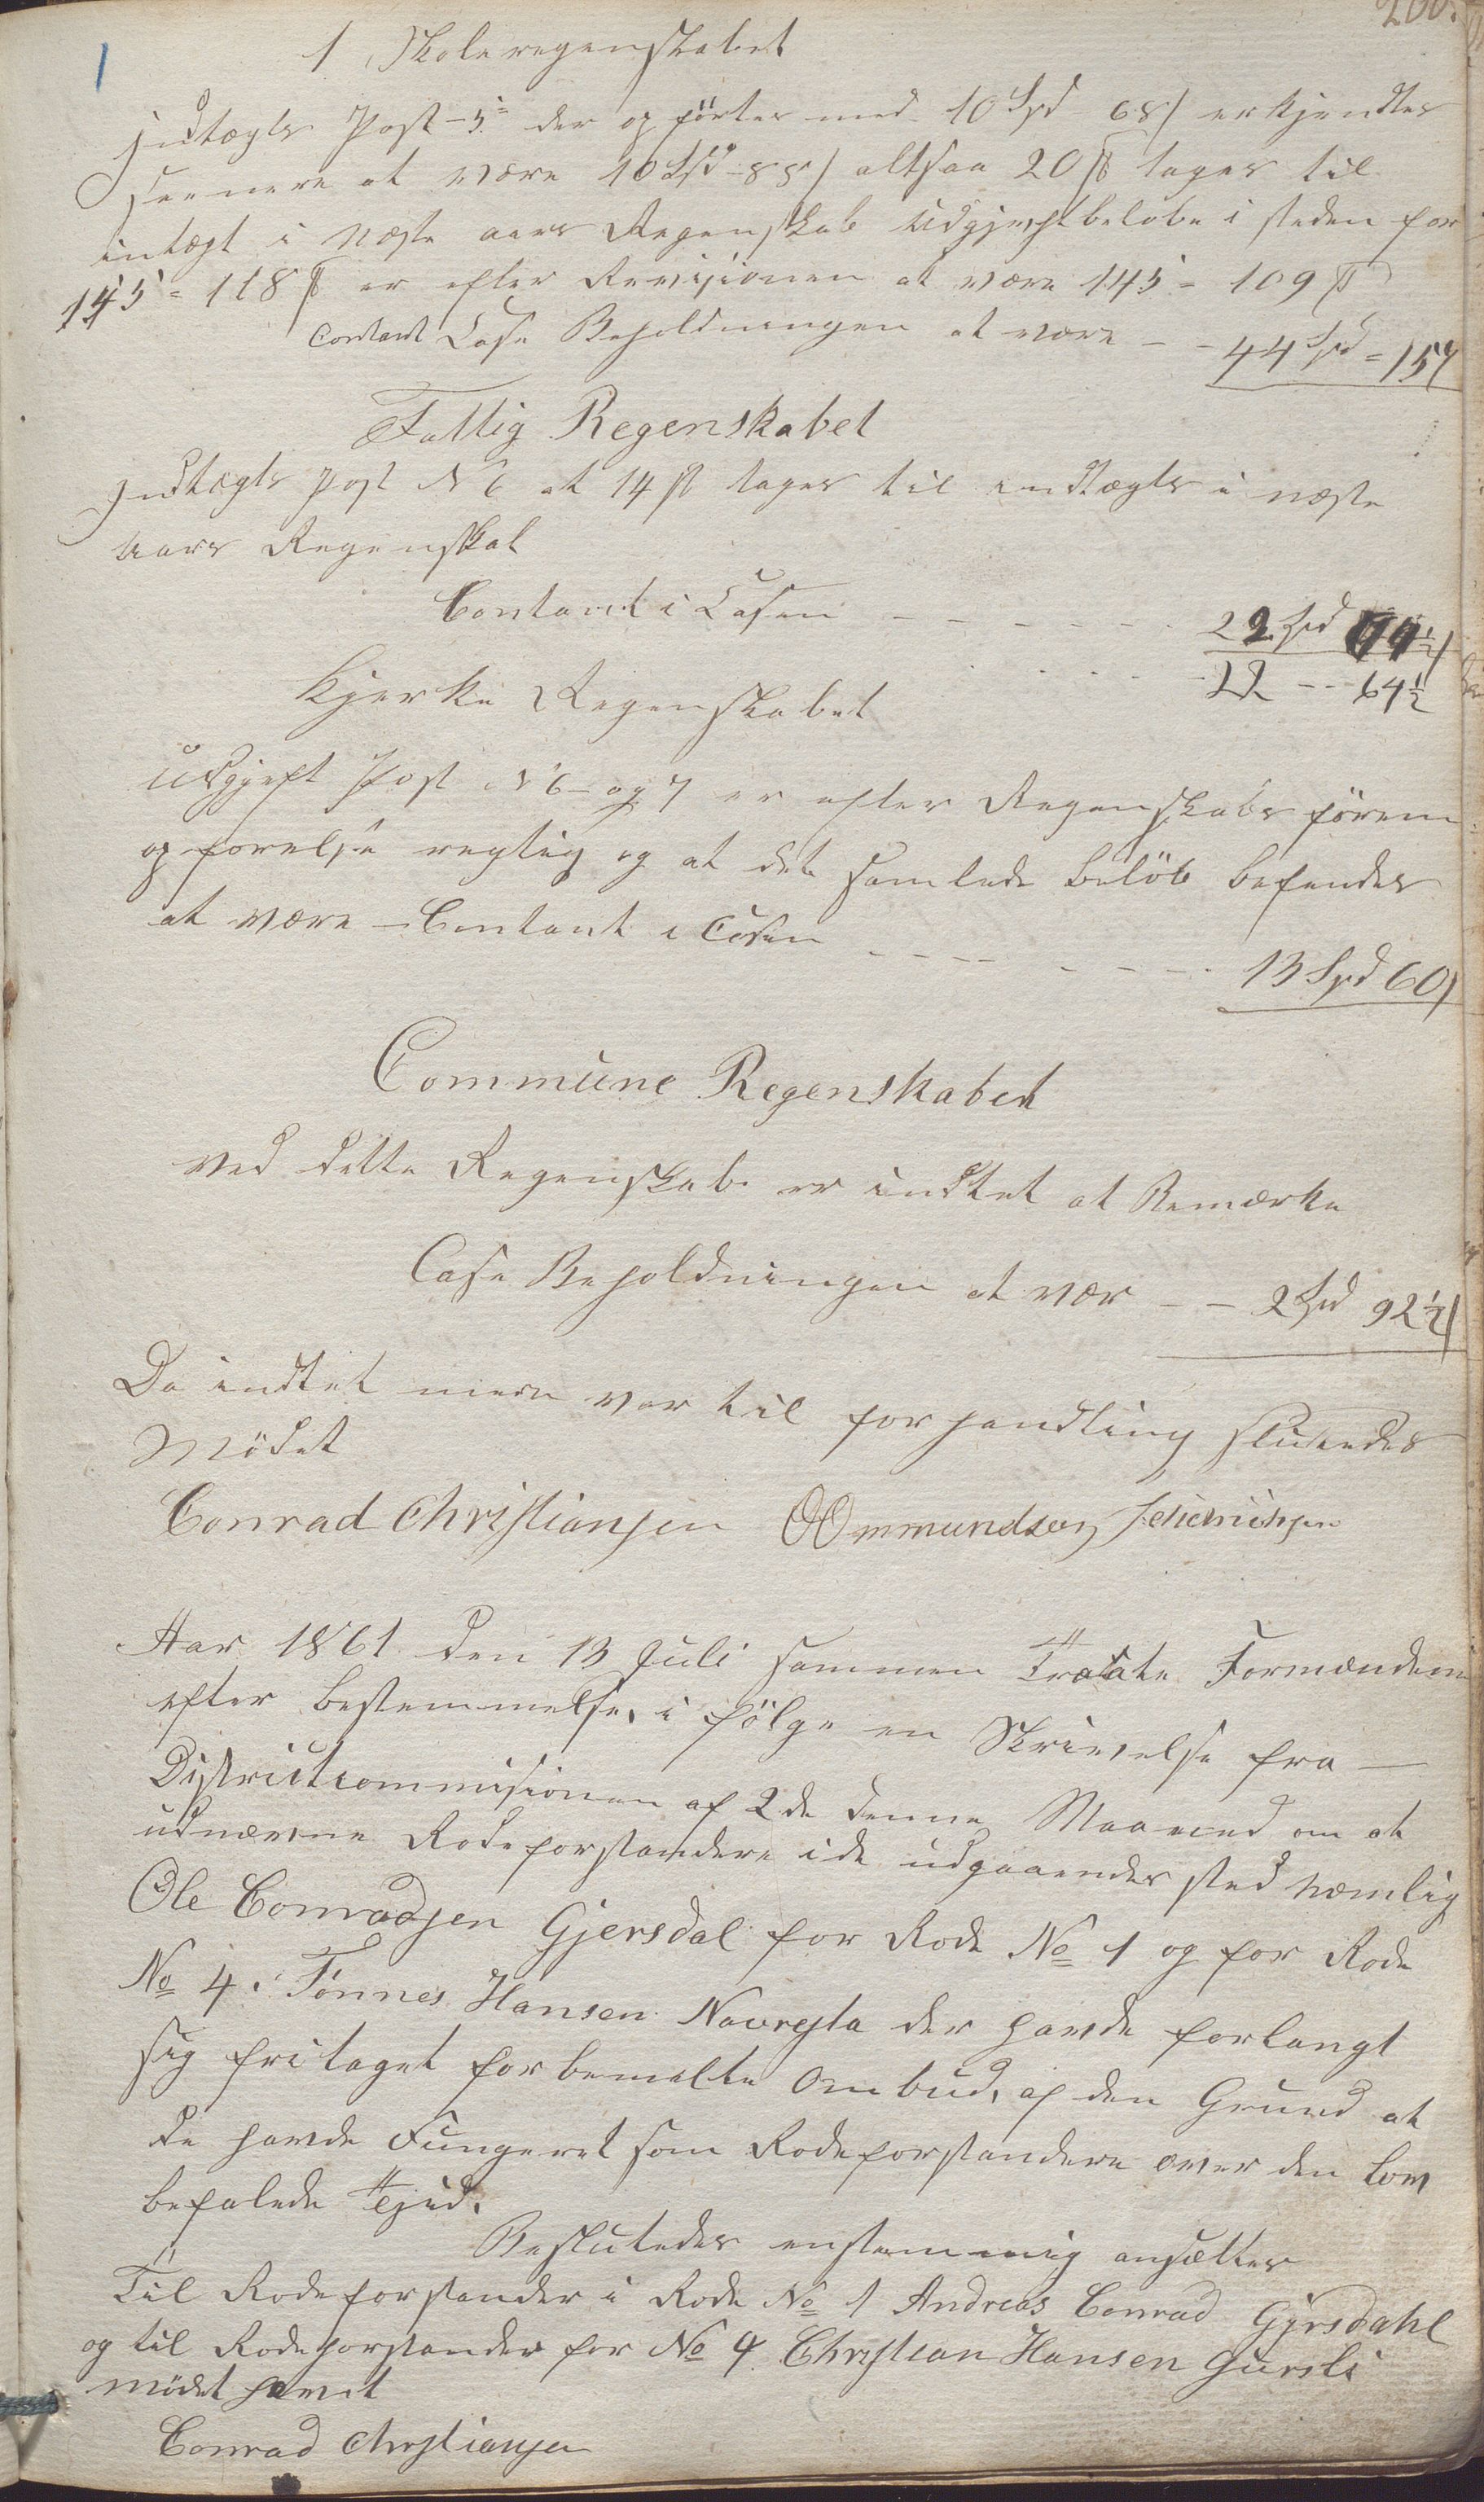 200.
1 Skoleregenskabet
Indtægts Post 5 der opförtes med 10 Spd 68 s erkjendtes
seenere at være 10 Spd 88 s altsaa 20 s tages til
intægt i Næste aars Regenskab Udgjevtbelöbe i steden for
145 = 118 s er efter Revisionen at være 145 = 109 s
Contant Case Beholdningen at være - - 44 Spd = 157
Fattig Regenskabet
Indtægts Post N 6 at 14 s tages til indtægts i næste
Aars Regenskab
Contant i Casen - - - - - - 22 Spd
22 - - 64½
Kjerke Regenskabet
Udgjeft Post N 6 og 7 er efter Regenskabs förerens
opförelse regtig og at det samlede belöb befendes
at være - Contant i Casen - - - - - - - 13 Spd 60 s
Commune Regenskabet
Ved dette Regenskab er indtet at Bemærke
Case Beholdningen at vær - - 2 Spd 92½ s
Da indtet mere var til forhandling sluttedes
Mödet
Conrad Christiansen OOmmundsen
Aar 1861 den 13 Juli sammen Traate Formændene
efter bestemmelse, i fölge en Skrivelse fra -
Districtcommisionen af 2de denne Maaned om at
udnævne Rodeforstandere i de udgaaendes sted nemlig
Ole Conradsen Gjersdal for Rode No 1 og for Rode
No 4. Tönnes Hansen Navresta der havde forlangt
sig fritaget for bemelte Ombud, af den Grund at
de havde Fungeret som Rodeforstandere over den Lov
befalede Tjid.
Besluttedes enstemmig ansætter
Til Rodeforstander i Rode No 1 Andreas Conrad Gjersdahl
og til Rodeforstander for No 4 Christian Hansen Gursli
mödet hævet
Conrad Christiansen